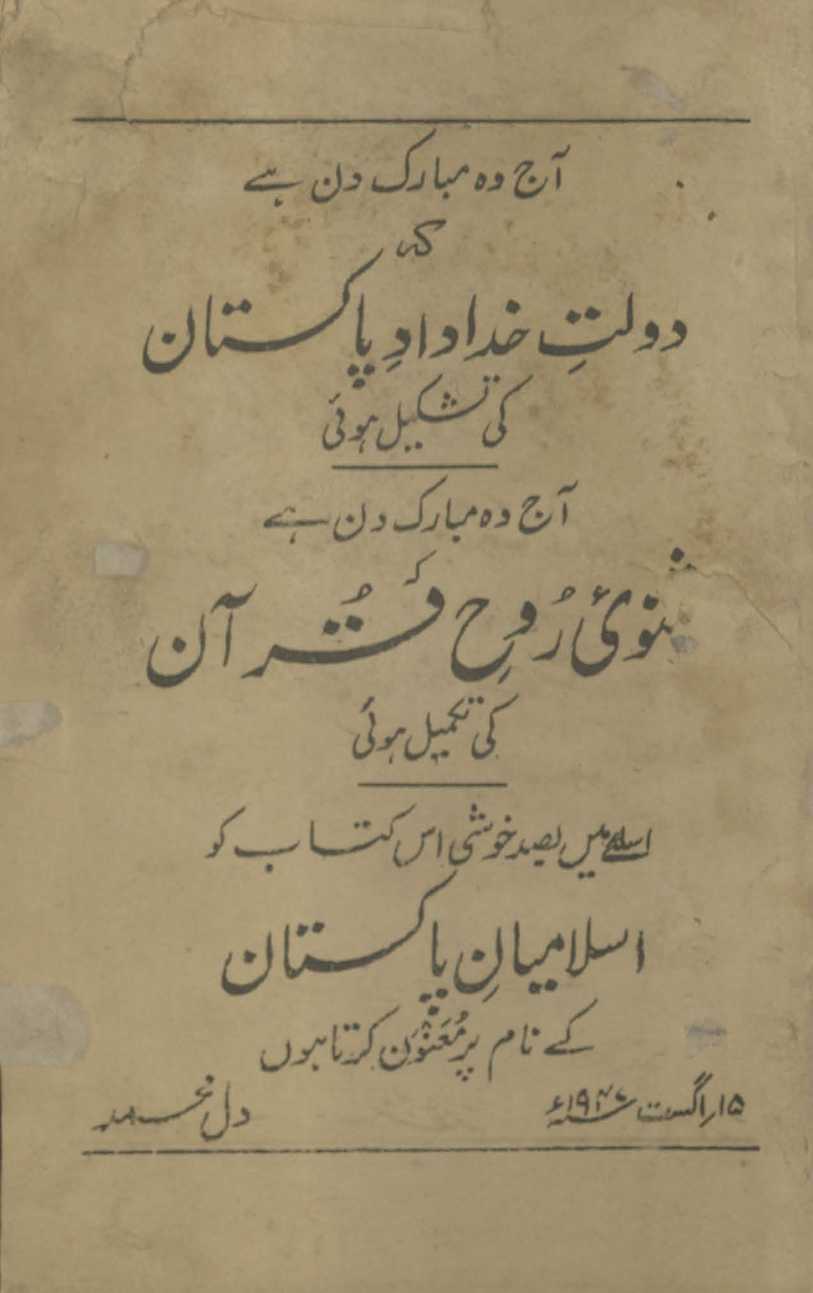 آج وہ مبارک دن ہے
کہ
دولتِ خدادادِ پاکستان
کی تشکیل ہوئی
آج وہ مبارک دن ہے
کہ
مثنویٔ رُوحِ قُرآن
کی تکمیل ہوئی
اسلئے میں بصد خوشی اس کتاب کو
اسلامیانِ پاکستان
کے نام پر مُعَنْوَن کرتا ہوں
۱۵ اگست ۱۹۴۷ء
دل محمد